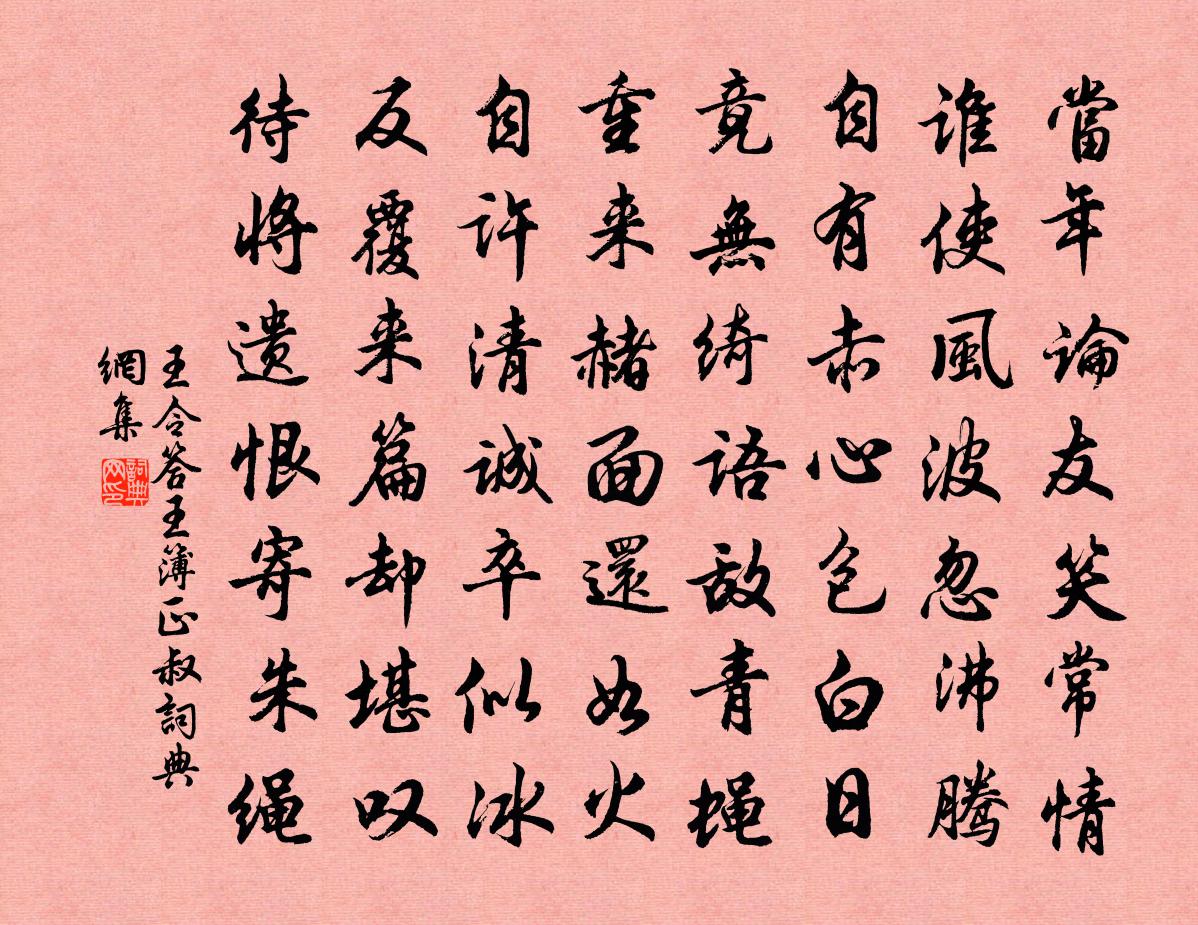 當年論友笑常情
誰使風波忽沸騰
自有赤心包白日
竟無綺語敌青蝇
重来赭面還如火
自许清誠卒似冰
反覆来篇却堪叹
待将遗恨寄朱绳
王令答王簿正叔詞典
網集
詞典
网印